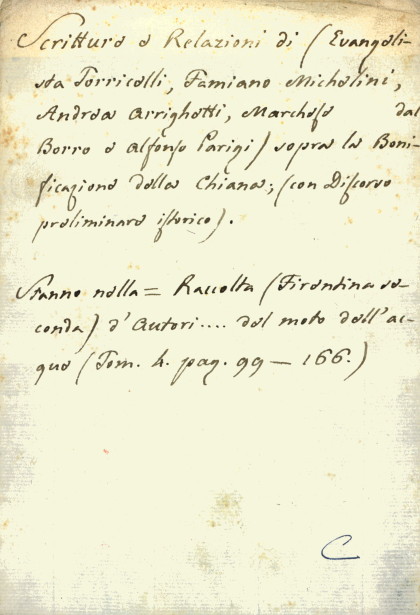 Scritture e Relazioni di (Evangeli-
sta Torricelli, Famiano Michelini,
Andrea Arrighetti, Marchese dal
Borro e Alfonso Parigi) sopra la Boni-
ficazione della Chiana; (con Discorso
preliminare istorico).
Stanno nella = Raccolta (Fiorentina se-
conda) d'Autori.... del moto dell'ac-
que (Tom. 4. pag. 99 — 166.)
C